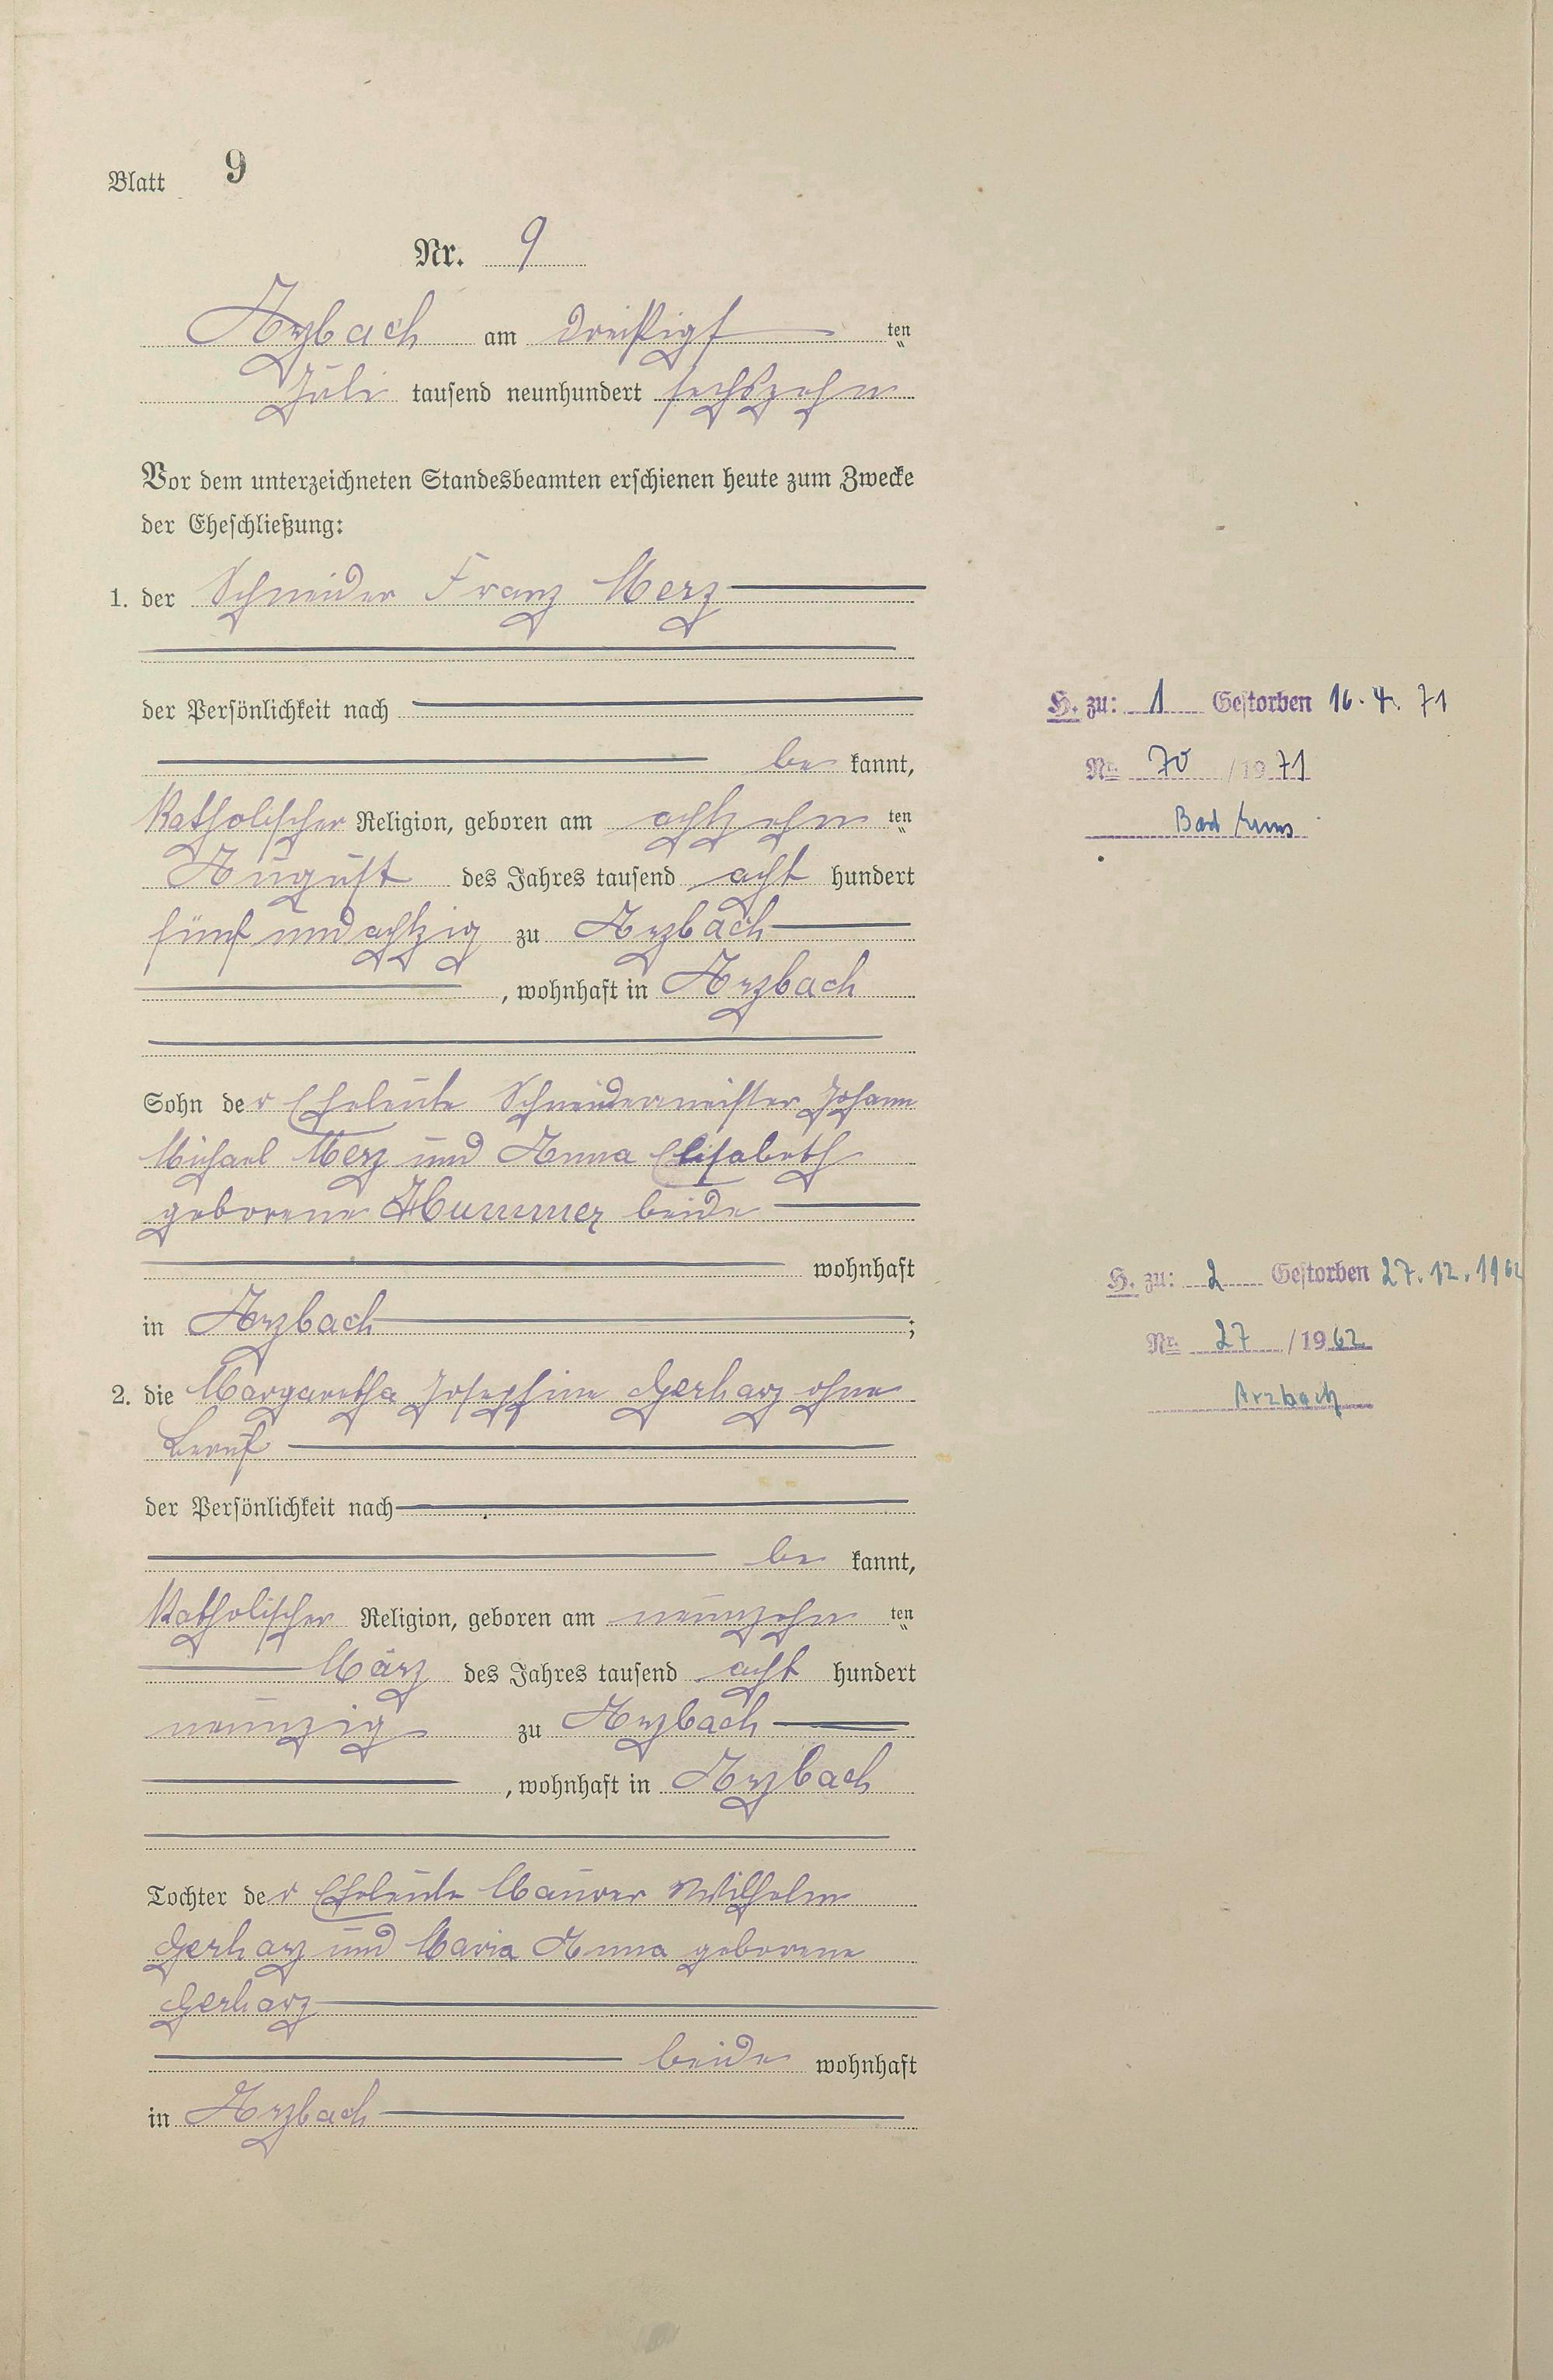 Blatt 9
Nr. 9
Arzbach am dreißigſ ten
Juli tausend neunhundert sechszehn
Vor dem unterzeichneten Standesbeamten erschienen heute zum Zwecke
der Eheschließung:
1. der Schneider Franz Merz
der Persönlichkeit nach
be kannt,
Katholischer Religion, geboren am achtzehn ten
August des Jahres tausend acht hundert
fünf und achtzig zu Arzbach
, wohnhaft in Arzbach
Sohn der Eheleute Schneidermeister Johann
Michael Merz und Anna Elisabeth
geborene Hummer beide
wohnhaft
in Arzbach ;
2. die Margaretha Josephine Gerharz ohne
Beruf
der Persönlichkeit nach
be kannt,
Katholischer Religion, geboren am neunzehn ten
März des Jahres tausend acht hundert
neunzig zu Arzbach
, wohnhaft in Arzbach
Tochter der Eheleute Maurer Wilhelm
Gerharz und Maria Anna geborene
Gerharz
beide wohnhaft
in Arzbach
H. zu: 1 Gestorben 16. 4. 71
Nr. 70 /1971
Bad Ems
H. zu: 2 Gestorben 27. 12. 1962
Nr. 27 /1962
Arzbach